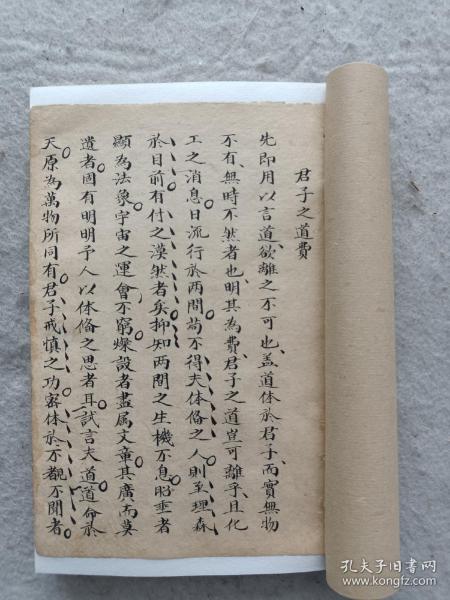 君子之道費
先即用以言道欲離之不可也蓋道体於君子而實無物
不有無時不然者也明其為費君子之道豈可離乎且化
工之消息日流行於两間苟不得夫体俻之人則至理森
於目前有付之漠然者矣抑知两間之生機不息昭垂者
顯為法象宇宙之運會不窮燦設者盡属文章其廣而莫
遺者固有明明予人以体俻之思者耳試言夫道道命於
天原為萬物所同有君子戒慎之功密体於不覩不聞者
孔夫子旧书网
www.kongfz.com